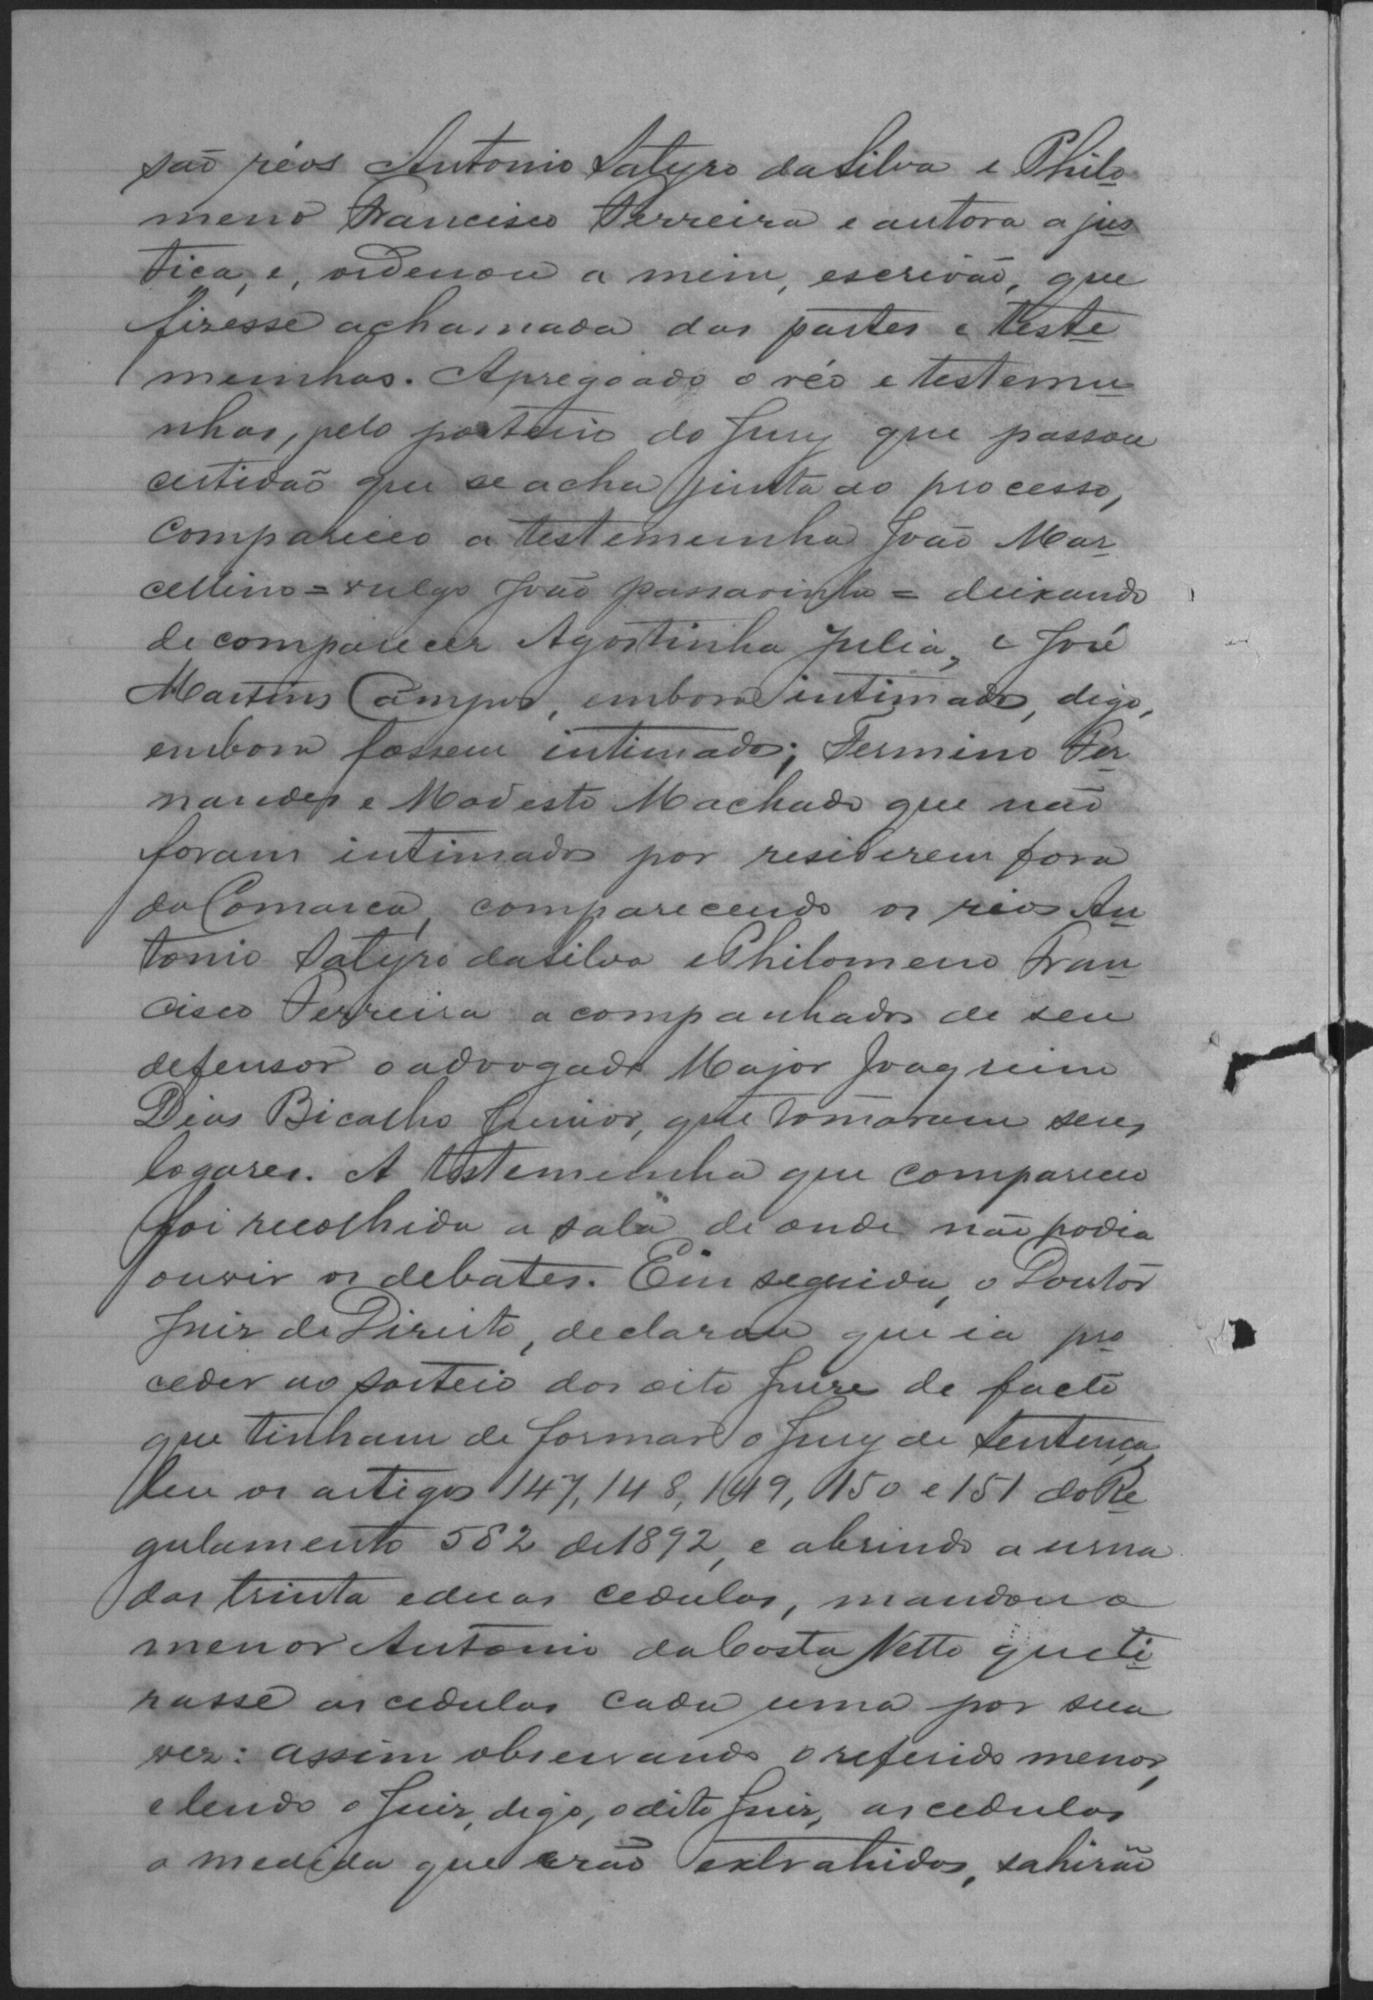 são réos Antonio Satyro da Silva e Philo
meno Francisco Ferreira e autora a jus
tiça, e, ordenou a mim, escrivão, que
fizesse a chamada das partes e teste
munhas. Apregoado o réo e testemu
nhas, pelo porteiro do Jury que passou
certidão que se acha junta ao processo,
compareceo a testemunha João Mar
cellino = vulgo João passarinho = deixando
de comparecer Agostinha Julia, e José
Martins Campos, embora intimados, digo,
embora fossem intimados; Fermino Fer
nandes e Modesto Machado que não
foram intimados por residirem fora
da Comarca, comparecendo os réos An
tonio Satyro da Silva e Philomeno Fran
cisco Ferreira acompanhados de seu
defensor o advogado Major Joaquim
Dias Bicalho Junior, que tomaram seus
logares. A testemunha que compareceu
foi recolhida a sala de onde não podia
ouvir os debates. Em seguida, o Doutor
Juiz de Direito, declarou que ia pro
ceder ao sorteio dos oito Juizes de facto
que tinham de formar o Jury de Sentença,
leu os artigos 147, 148, 149, 150 e 151 do Re
gulamento 582 de 1892, e abrindo a urna
das trinta e duas cedulas, mandou o
menor Antonio da Costa Netto que ti
rasse as cedulas cada uma por sua
vez: assim observando o referido menor,
e lendo o Juiz, digo, o dito Juiz, as cedulas
a medida que erão extrahidas, sahirão